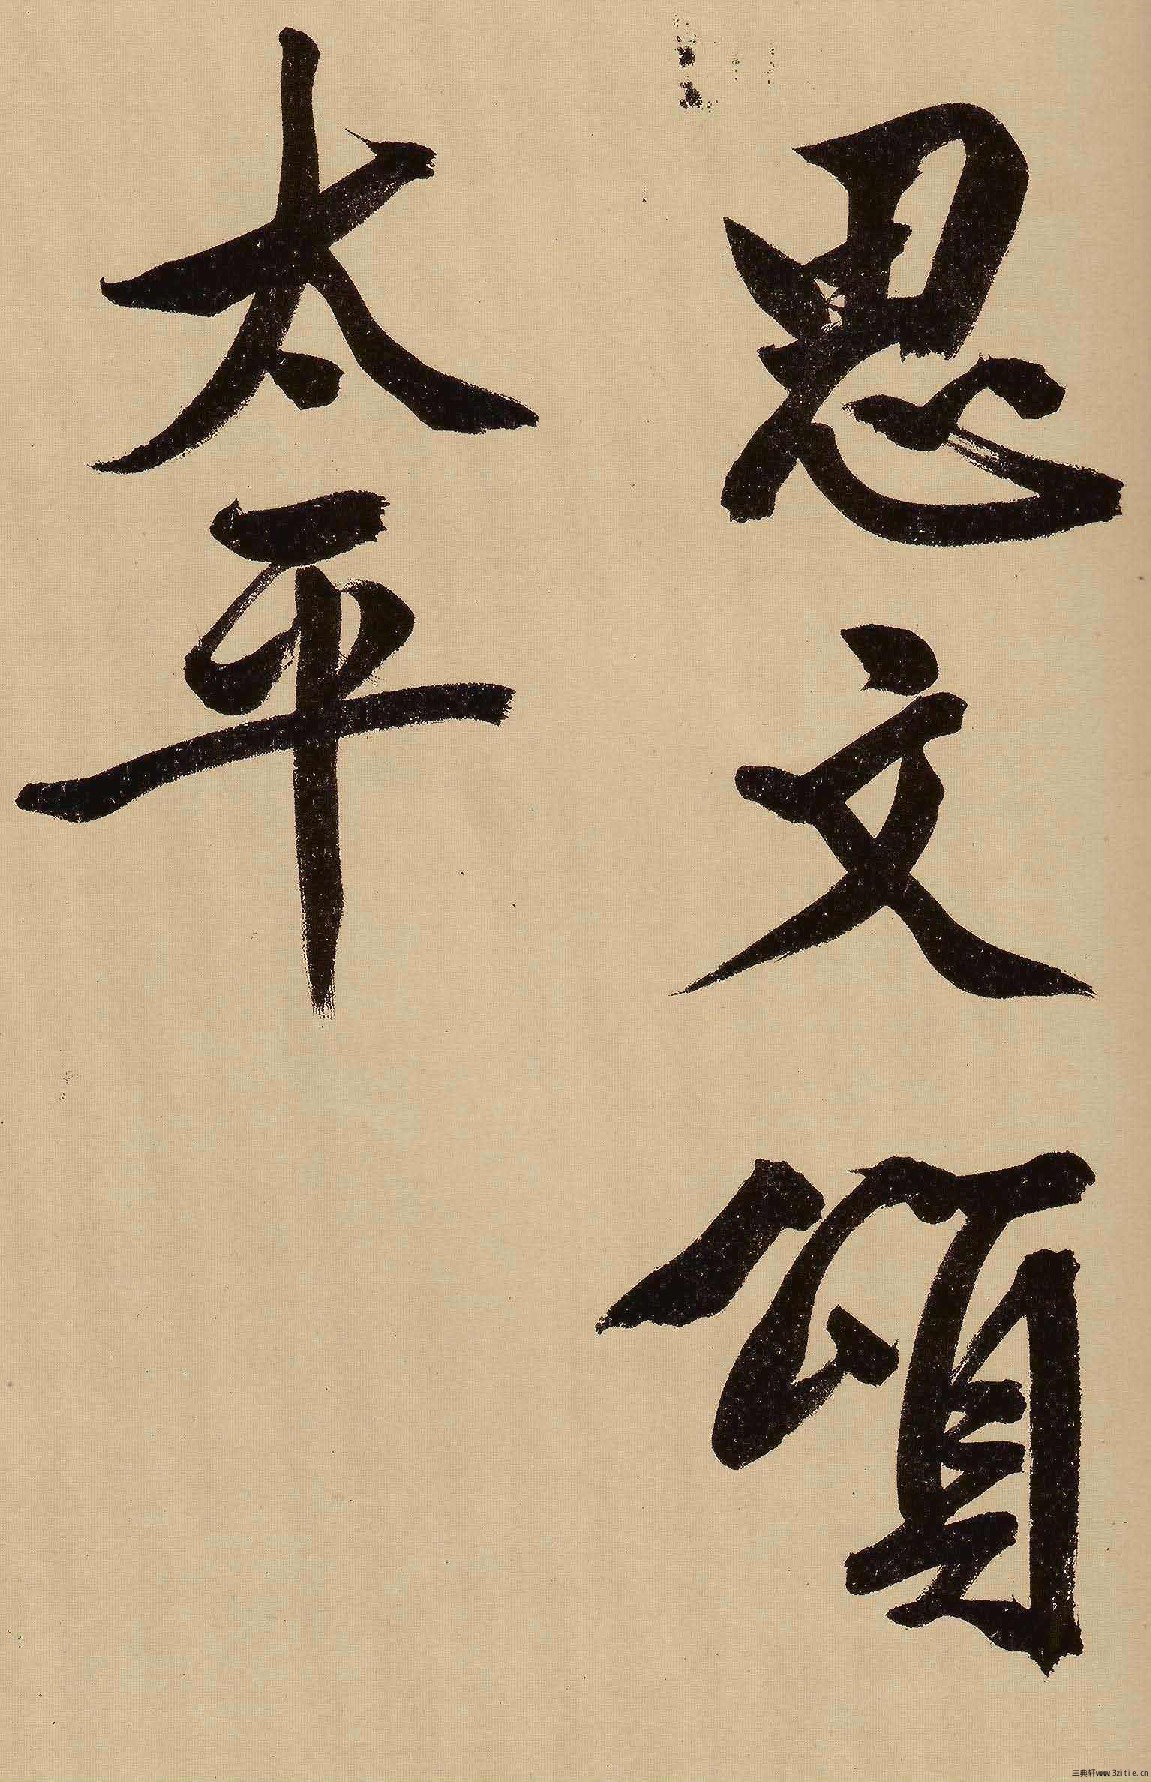 思文頌
太平
三典轩www.3zitie.cn